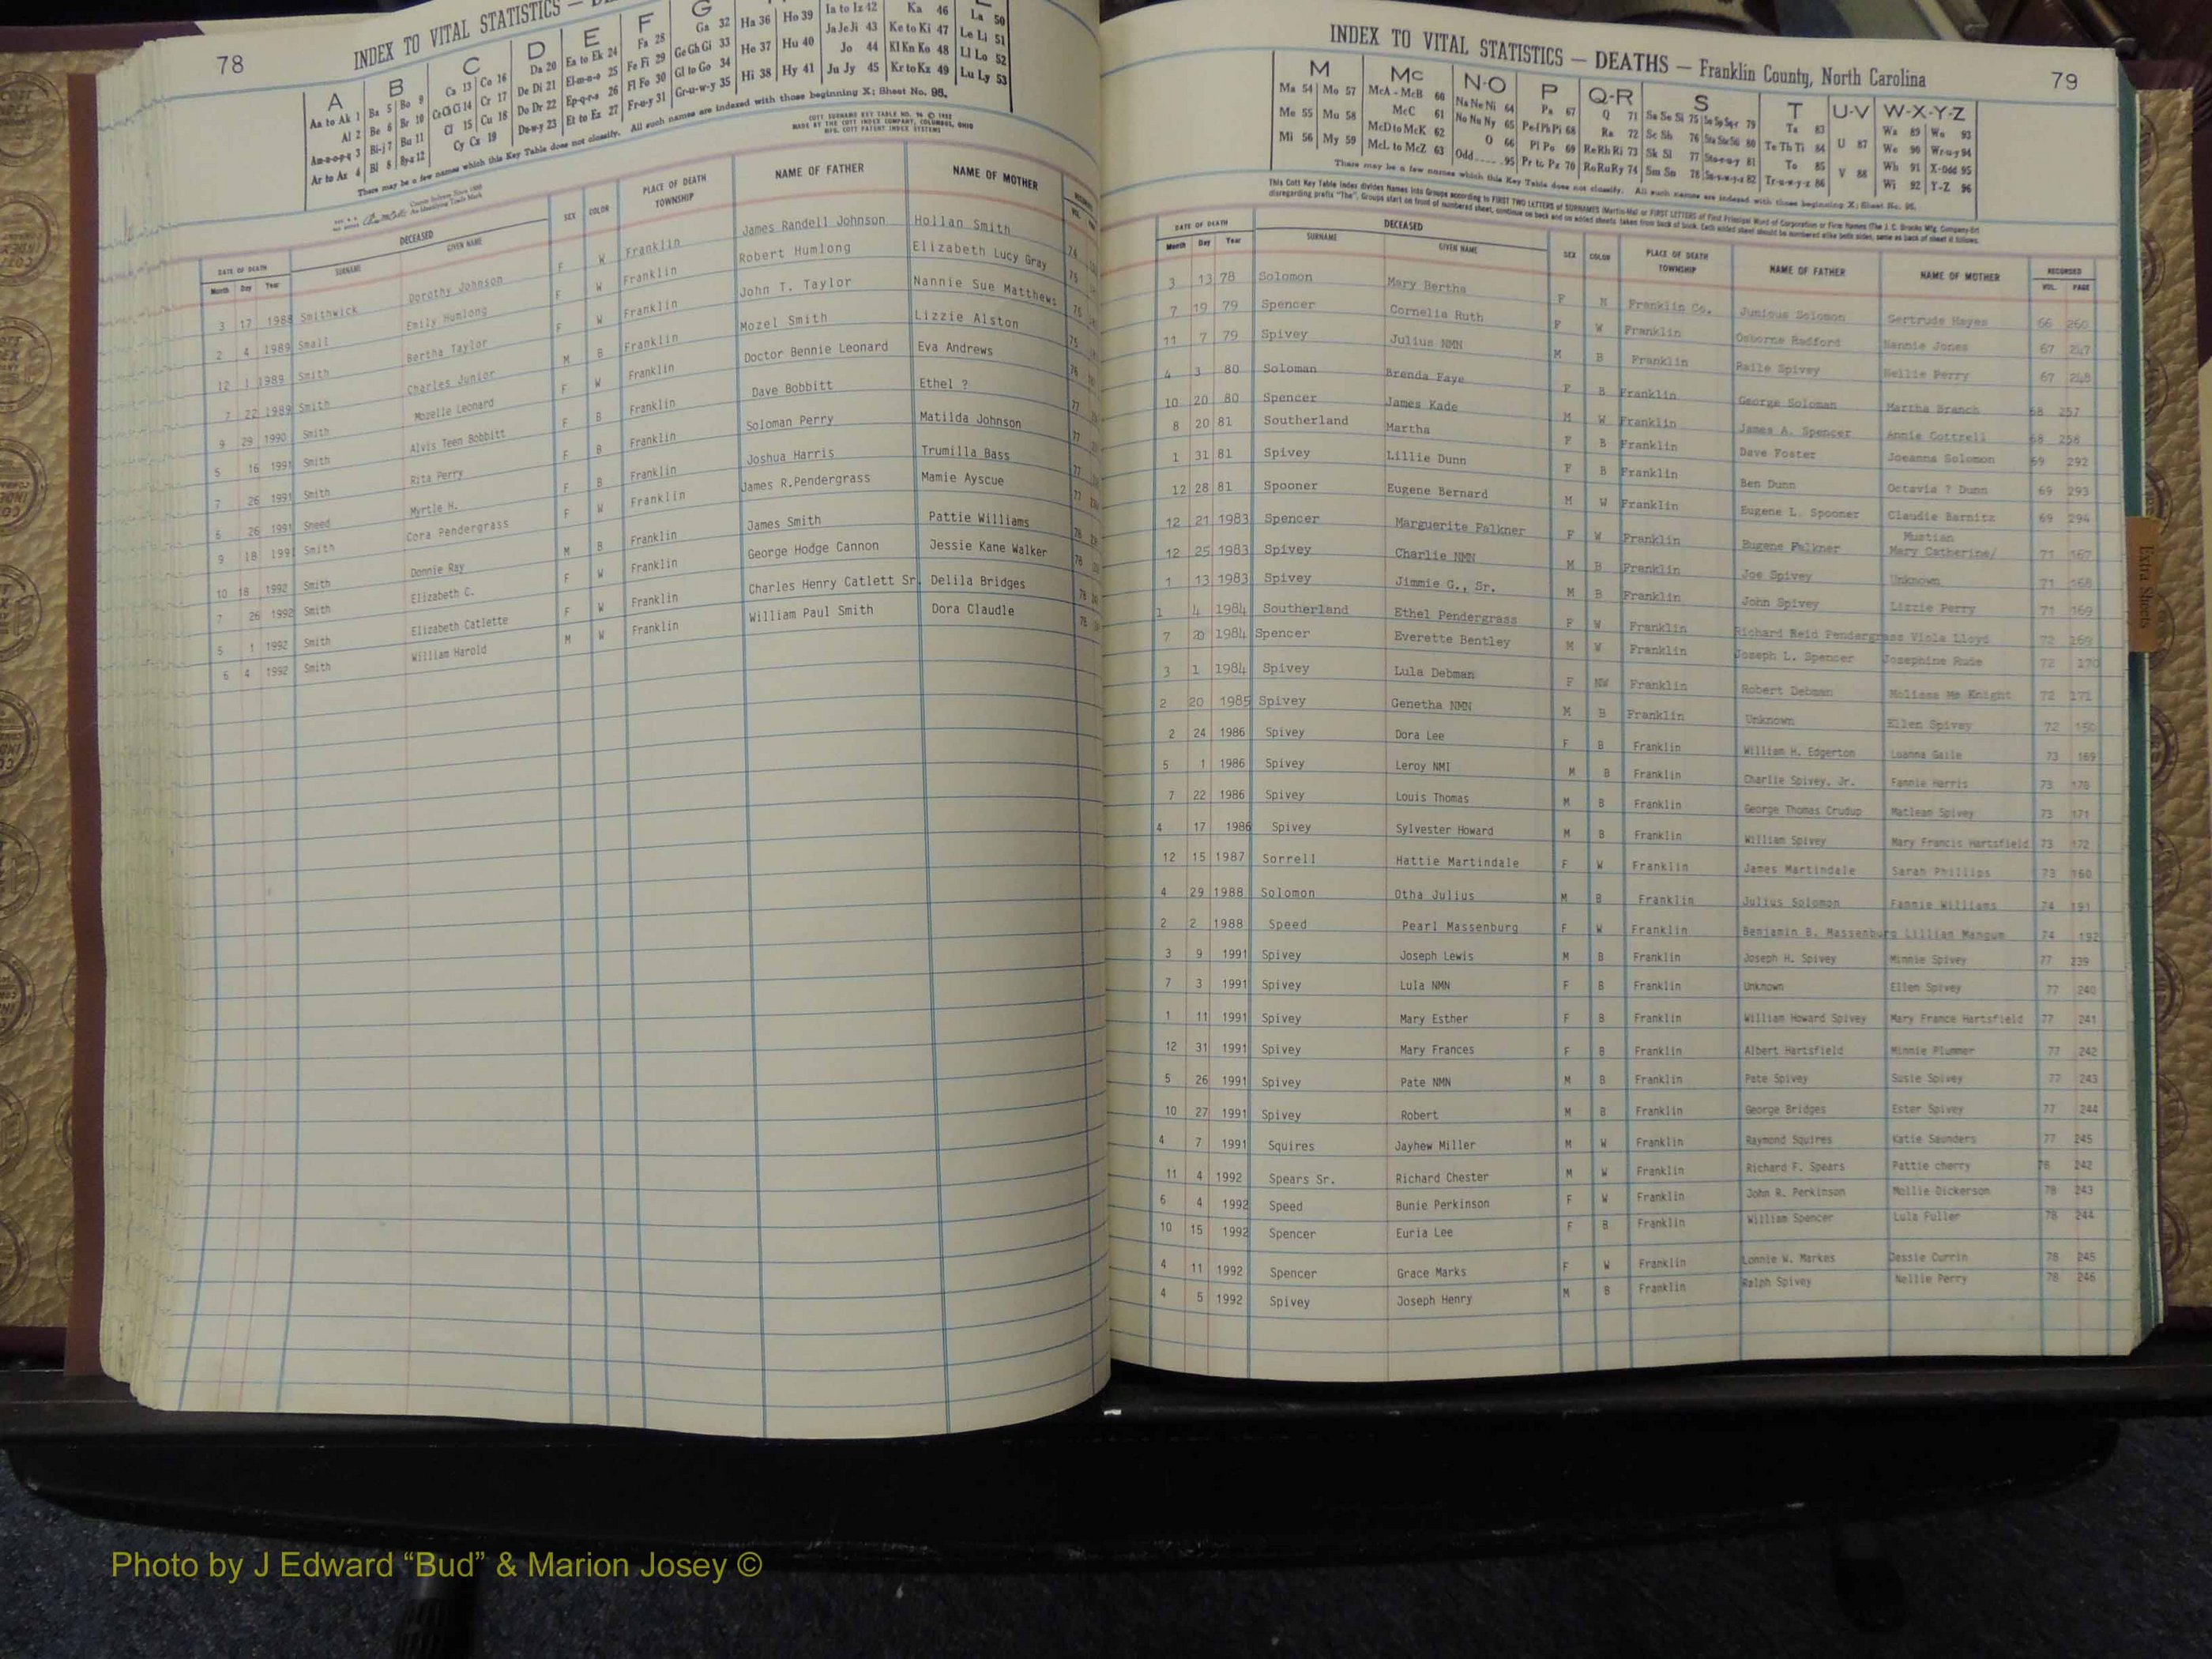 78
INDEX TO VITAL STATISTICS —
A B C D E F G
Aa to Ak 1 Ba 5 Bo 9 Ca 13 Co 16 Da 20 Ea to Ek 24 Fa 28 Ga 32 Ha 36 Ho 39 Ia to Iz 42 Ka 46 La 50
Al 2 Be 6 Br 10 Ce Ch Ci 14 Cr 17 De Di 21 El-m-n-o 25 Fe Fi 29 Ge Gh Gi 33 He 37 Hu 40 Ja Je Ji 43 Ke to Ki 47 Le Li 51
Am-n-o-p-q 3 Bi-j 7 Bu 11 Cl 15 Cu 18 Do Dr 22 Ep-q-r-s 26 Fl Fo 30 Gl to Go 34 Hi 38 Hy 41 Jo 44 Kl Kn Ko 48 Ll Lo 52
Ar to Az 4 Bl 8 By-z 12 Cy Cz 19 Du-w-y 23 Et to Ez 27 Fr-u-y 31 Gr-u-w-y 35 Ju Jy 45 Kr to Kz 49 Lu Ly 53
There may be a few names which this Key Table does not classify. All such names are indexed with those beginning X; Sheet No. 95.
DATE OF DEATH DECEASED SEX COLOR PLACE OF DEATH NAME OF FATHER NAME OF MOTHER
Month Day Year SURNAME GIVEN NAME TOWNSHIP
3 17 1988 Smithwick Dorothy Johnson F W Franklin James Randell Johnson Hollan Smith 74
2 4 1989 Small Emily Humlong F W Franklin Robert Humlong Elizabeth Lucy Gray 75
12 1 1989 Smith Bertha Taylor F W Franklin John T. Taylor Nannie Sue Matthews 75
7 22 1989 Smith Charles Junior M B Franklin Mozel Smith Lizzie Alston 75
9 29 1990 Smith Mozelle Leonard F W Franklin Doctor Bennie Leonard Eva Andrews 76
5 16 1991 Smith Alvis Teen Bobbitt F B Franklin Dave Bobbitt Ethel ? 77
7 26 1991 Smith Rita Perry F B Franklin Soloman Perry Matilda Johnson 77
6 26 1991 Sneed Myrtle H. F B Franklin Joshua Harris Trumilla Bass 77
9 18 1991 Smith Cora Pendergrass F W Franklin James R.Pendergrass Mamie Ayscue 77
10 18 1992 Smith Donnie Ray M B Franklin James Smith Pattie Williams 78
7 26 1992 Smith Elizabeth C. F W Franklin George Hodge Cannon Jessie Kane Walker 78
5 1 1992 Smith Elizabeth Catlette F W Franklin Charles Henry Catlett Sr. Delila Bridges 78
6 4 1992 Smith William Harold M W Franklin William Paul Smith Dora Claudle 78
INDEX TO VITAL STATISTICS — DEATHS — Franklin County, North Carolina
79
M Mc N-O P Q-R S T U-V W-X-Y-Z
Ma 54 Mo 57 McA - McB 60 Na Ne Ni 64 Pa 67 Q 71 Sa Se Si 75 So Sp Sq-r 79 Ta 83 U 87 Wa 89 Wo 93
Me 55 Mu 58 McC 61 No Nu Ny 65 Pe-f Ph Pi 68 Ra 72 Sc Sh 76 Sta Ste Sti 80 Te Th Ti 84 We 90 Wr-u-y 94
Mi 56 My 59 McD to McK 62 O 66 Pl Po 69 Re Rh Ri 73 Sk Sl 77 Sto-r-u-y 81 To 85 V 88 Wh 91 X-Odd 95
McL to McZ 63 Odd.....95 Pr to Pz 70 Ro Ru Ry 74 Sm Sn 78 Su-v-w-y-z 82 Tr-u-w-y-z 86 Wi 92 Y-Z 96
There may be a few names which this Key Table does not classify. All such names are indexed with those beginning X; Sheet No. 95.
DATE OF DEATH DECEASED SEX COLOR PLACE OF DEATH NAME OF FATHER NAME OF MOTHER RECORDED
Month Day Year SURNAME GIVEN NAME TOWNSHIP VOL. PAGE
3 13 78 Solomon Mary Bertha F N Franklin Co. Junious Solomon Gertrude Hayes 66 260
7 19 79 Spencer Cornelia Ruth F W Franklin Osborne Radford Nannie Jones 67 247
11 7 79 Spivey Julius NMN M B Franklin Raile Spivey Nellie Perry 67 248
4 3 80 Soloman Brenda Faye F B Franklin George Soloman Martha Branch 68 257
10 20 80 Spencer James Kade M W Franklin James A. Spencer Annie Cottrell 68 258
8 20 81 Southerland Martha F B Franklin Dave Foster Joeanna Solomon 69 292
1 31 81 Spivey Lillie Dunn F B Franklin Ben Dunn Octavia ? Dunn 69 293
12 28 81 Spooner Eugene Bernard M W Franklin Eugene L. Spooner Claudie Barnitz 69 294
12 21 1983 Spencer Marguerite Falkner F W Franklin Eugene Falkner Mary Catherine/ Mustian 71 167
12 25 1983 Spivey Charlie NMN M B Franklin Joe Spivey Unknown 71 168
1 13 1983 Spivey Jimmie G., Sr. M B Franklin John Spivey Lizzie Perry 71 169
1 4 1984 Southerland Ethel Pendergrass F W Franklin Richard Reid Pendergrass Viola Lloyd 72 169
7 20 1984 Spencer Everette Bentley M W Franklin Joseph L. Spencer Josephine Rude 72 170
3 1 1984 Spivey Lula Debman F NW Franklin Robert Debman Molissa Mc Knight 72 171
2 20 1985 Spivey Genetha NMN M B Franklin Unknown Ellen Spivey 72 150
2 24 1986 Spivey Dora Lee F B Franklin William H. Edgerton Luanna Gaile 73 169
5 1 1986 Spivey Leroy NMI M B Franklin Charlie Spivey, Jr. Fannie Harris 73 170
7 22 1986 Spivey Louis Thomas M B Franklin George Thomas Crudup Matlean Spivey 73 171
4 17 1986 Spivey Sylvester Howard M B Franklin William Spivey Mary Francis Hartsfield 73 172
12 15 1987 Sorrell Hattie Martindale F W Franklin James Martindale Sarah Phillips 73 160
4 29 1988 Solomon Otha Julius M B Franklin Julius Solomon Fannie Williams 74 191
2 2 1988 Speed Pearl Massenburg F W Franklin Benjamin B. Massenburg Lillian Mangum 74 192
3 9 1991 Spivey Joseph Lewis M B Franklin Joseph H. Spivey Minnie Spivey 77 239
7 3 1991 Spivey Lula NMN F B Franklin Unknown Ellen Spivey 77 240
1 11 1991 Spivey Mary Esther F B Franklin William Howard Spivey Mary France Hartsfield 77 241
12 31 1991 Spivey Mary Frances F B Franklin Albert Hartsfield Minnie Plummer 77 242
5 26 1991 Spivey Pate NMN M B Franklin Pate Spivey Susie Spivey 77 243
10 27 1991 Spivey Robert M B Franklin George Bridges Ester Spivey 77 244
4 7 1991 Squires Jayhew Miller M W Franklin Raymond Squires Katie Saunders 77 245
11 4 1992 Spears Sr. Richard Chester M W Franklin Richard F. Spears Pattie cherry 78 242
6 4 1992 Speed Bunie Perkinson F W Franklin John R. Perkinson Mollie Dickerson 78 243
10 15 1992 Spencer Euria Lee F B Franklin William Spencer Lula Fuller 78 244
4 11 1992 Spencer Grace Marks F W Franklin Lonnie W. Markes Jessie Currin 78 245
4 5 1992 Spivey Joseph Henry M B Franklin Ralph Spivey Nellie Perry 78 246
Extra Sheets
Photo by J Edward “Bud” & Marion Josey ©